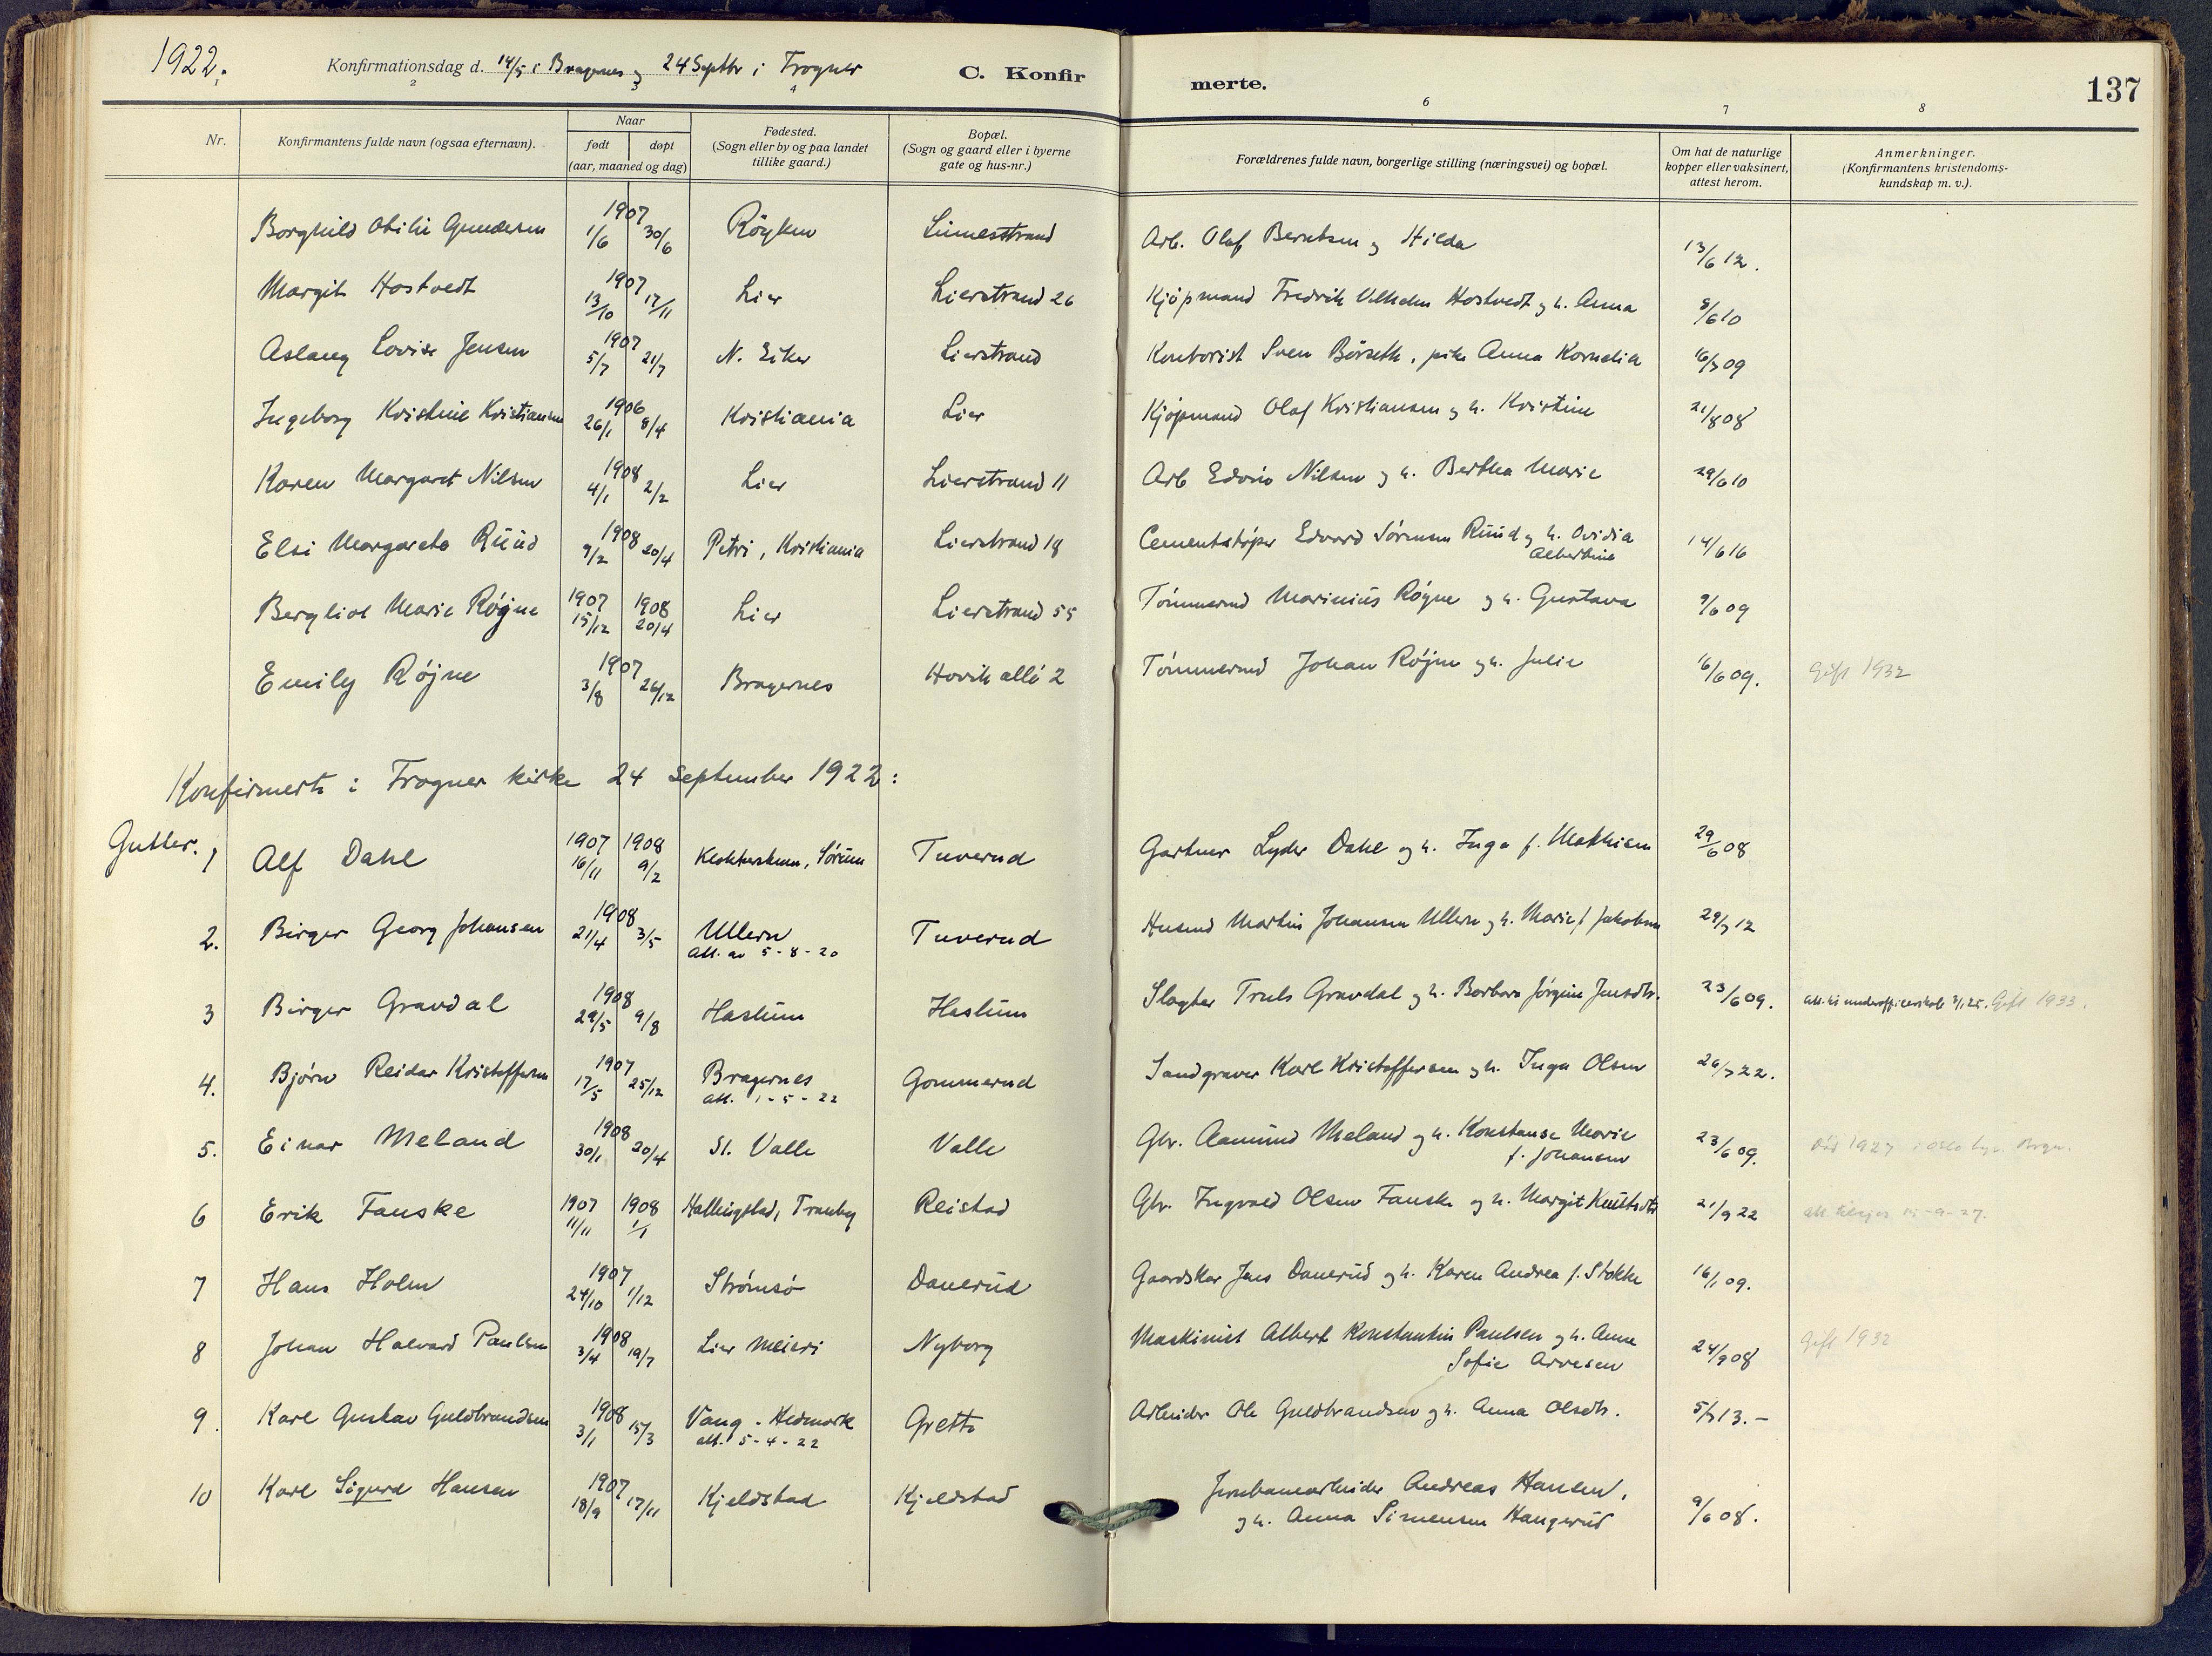 1922.
Konfirmationsdag d. 14/5 i Bragernes og 24 Septbr i Frogner
C. Konfir
merte.
137
2 3 4 6 7 8
Nr.
Konfirmantens fulde navn (ogsaa efternavn).
Naar
født
døpt
(aar, maaned og dag)
Fødested.
(Sogn eller by og paa landet
tillike gaard.)
Bopæl.
(Sogn og gaard eller i byerne
gate og hus-nr.)
Forældrenes fulde navn, borgerlige stilling (næringsvei) og bopæl.
Om hat de naturlige
kopper eller vaksinert,
attest herom.
Anmerkninger.
(Konfirmantens kristendoms-
kundskap m. v.).
Borghild Otilie Gundersen 1907 1/6 30/6 Röyken Linnesstrand Arb. Olaf Berntsen og Hilda 13/6 12.
Margit Hostvedt 1907 13/10 17/11 Lier Lierstrand 26 Kjøpmand Fredrik Vilhelm Hostvedt og h. Anna 8/6 10
Aslaug Lovise Jensen 1907 5/7 21/7 N. Eiker Lierstrand Kontorist Sven Börseth, pike Anna Kornelia 16/7 09
Ingeborg Kristine Kristiansen 1906 26/1 8/4 Kristiania Lier Kjøpmand Olaf Kristiansen og h. Kristine 21/8 08
Karen Margaret Nilsen 1908 4/1 2/2 Lier Lierstrand 11 Arb Edvin Nilsen og h. Bertha Marie 29/6 10
Elsi Margareta Ruud 1908 9/2 20/4 Petri, Kristiania Lierstrand 18 Cementstøper Edvard Sörensen Ruud og h. Ovidia
Albertine 14/6 16
Bergliot Marie Røgne 1907 15/12 1908 20/4 Lier Lierstrand 55 Tömmermd Marinius Rögne og h. Gustava 9/6 09
Emily Røjne 1907 3/8 26/12 Bragernes Hovik allé 2 Tömmermd Johan Røjne og h. Julie 16/6 09. Gift 1932
Konfirmerte i Frogner kirke 24 september 1922:
Gutter. 1 Alf Dahl 1907 16/11 1908 9/2 Sørum Tuverud Gartner Lyder Dahl og h. Inga f. Mathisen 29/6 08
2. Birger Georg Johansen 1908 21/4 3/5 Ullern Tuverud Husmd Martin Johansen Ullern og h. Marie f. Jakobsen 29/7 12
Att. av 5-8-20
3 Birger Gravdal 1908 29/5 9/8 Haslum Haslum Slagter Truls Gravdal og h. Barbara Jörgine Jensdtr. 23/6 09. att. til underofficerskole 3/1 25. Gift 1933.
4. Bjørn Reidar Kristoffersen 1907 17/5 25/12 Bragernes Gommerud Sandgraver Karl Kristoffersen og h. Inga Olsen 26/7 22.
att. 1-5-22
5. Einar Meland 1908 30/1 20/4 St. Valle Valle Gbr. Aamund Meland og h. Konstanse Marie
f. Johansen 23/6 09. Död 1927 i Oslo
6 Erik Fauske 1907 11/11 1908 1/1 Hallingstad, Tranby Reistad Gbr. Ingvald Olsen Fauske og h. Margit Knutsdtr 21/9 22 att. 15-9-27.
7 Hans Holm 1907 24/10 1/12 Strømsö Danerud Gaardskar Jens Danerud og h. Karen Andrea f. Stokke 16/1 09.
8 Johan Halvard Paulsen 1908 3/4 19/7 Lier Meieri Nyborg Maskinist Albert Konstantin Paulsen og h. Anne
Sofie Arvesen 24/9 08 Gift 1932
9. Karl Gustav Guldbrandsen 1908 3/1 15/3 Vang - Hedmark Grette Arbeider Ole Guldbrandsen og h. Anna Olsdtr. 5/7 13.-
att. 5-4-22
10 Karl Sigurd Hansen 1907 18/9 17/11 Kjeldstad Kjeldstad Jernbanearbeider Andreas Hansen,
og h. Anna Simensen Haugerud 9/6 08.